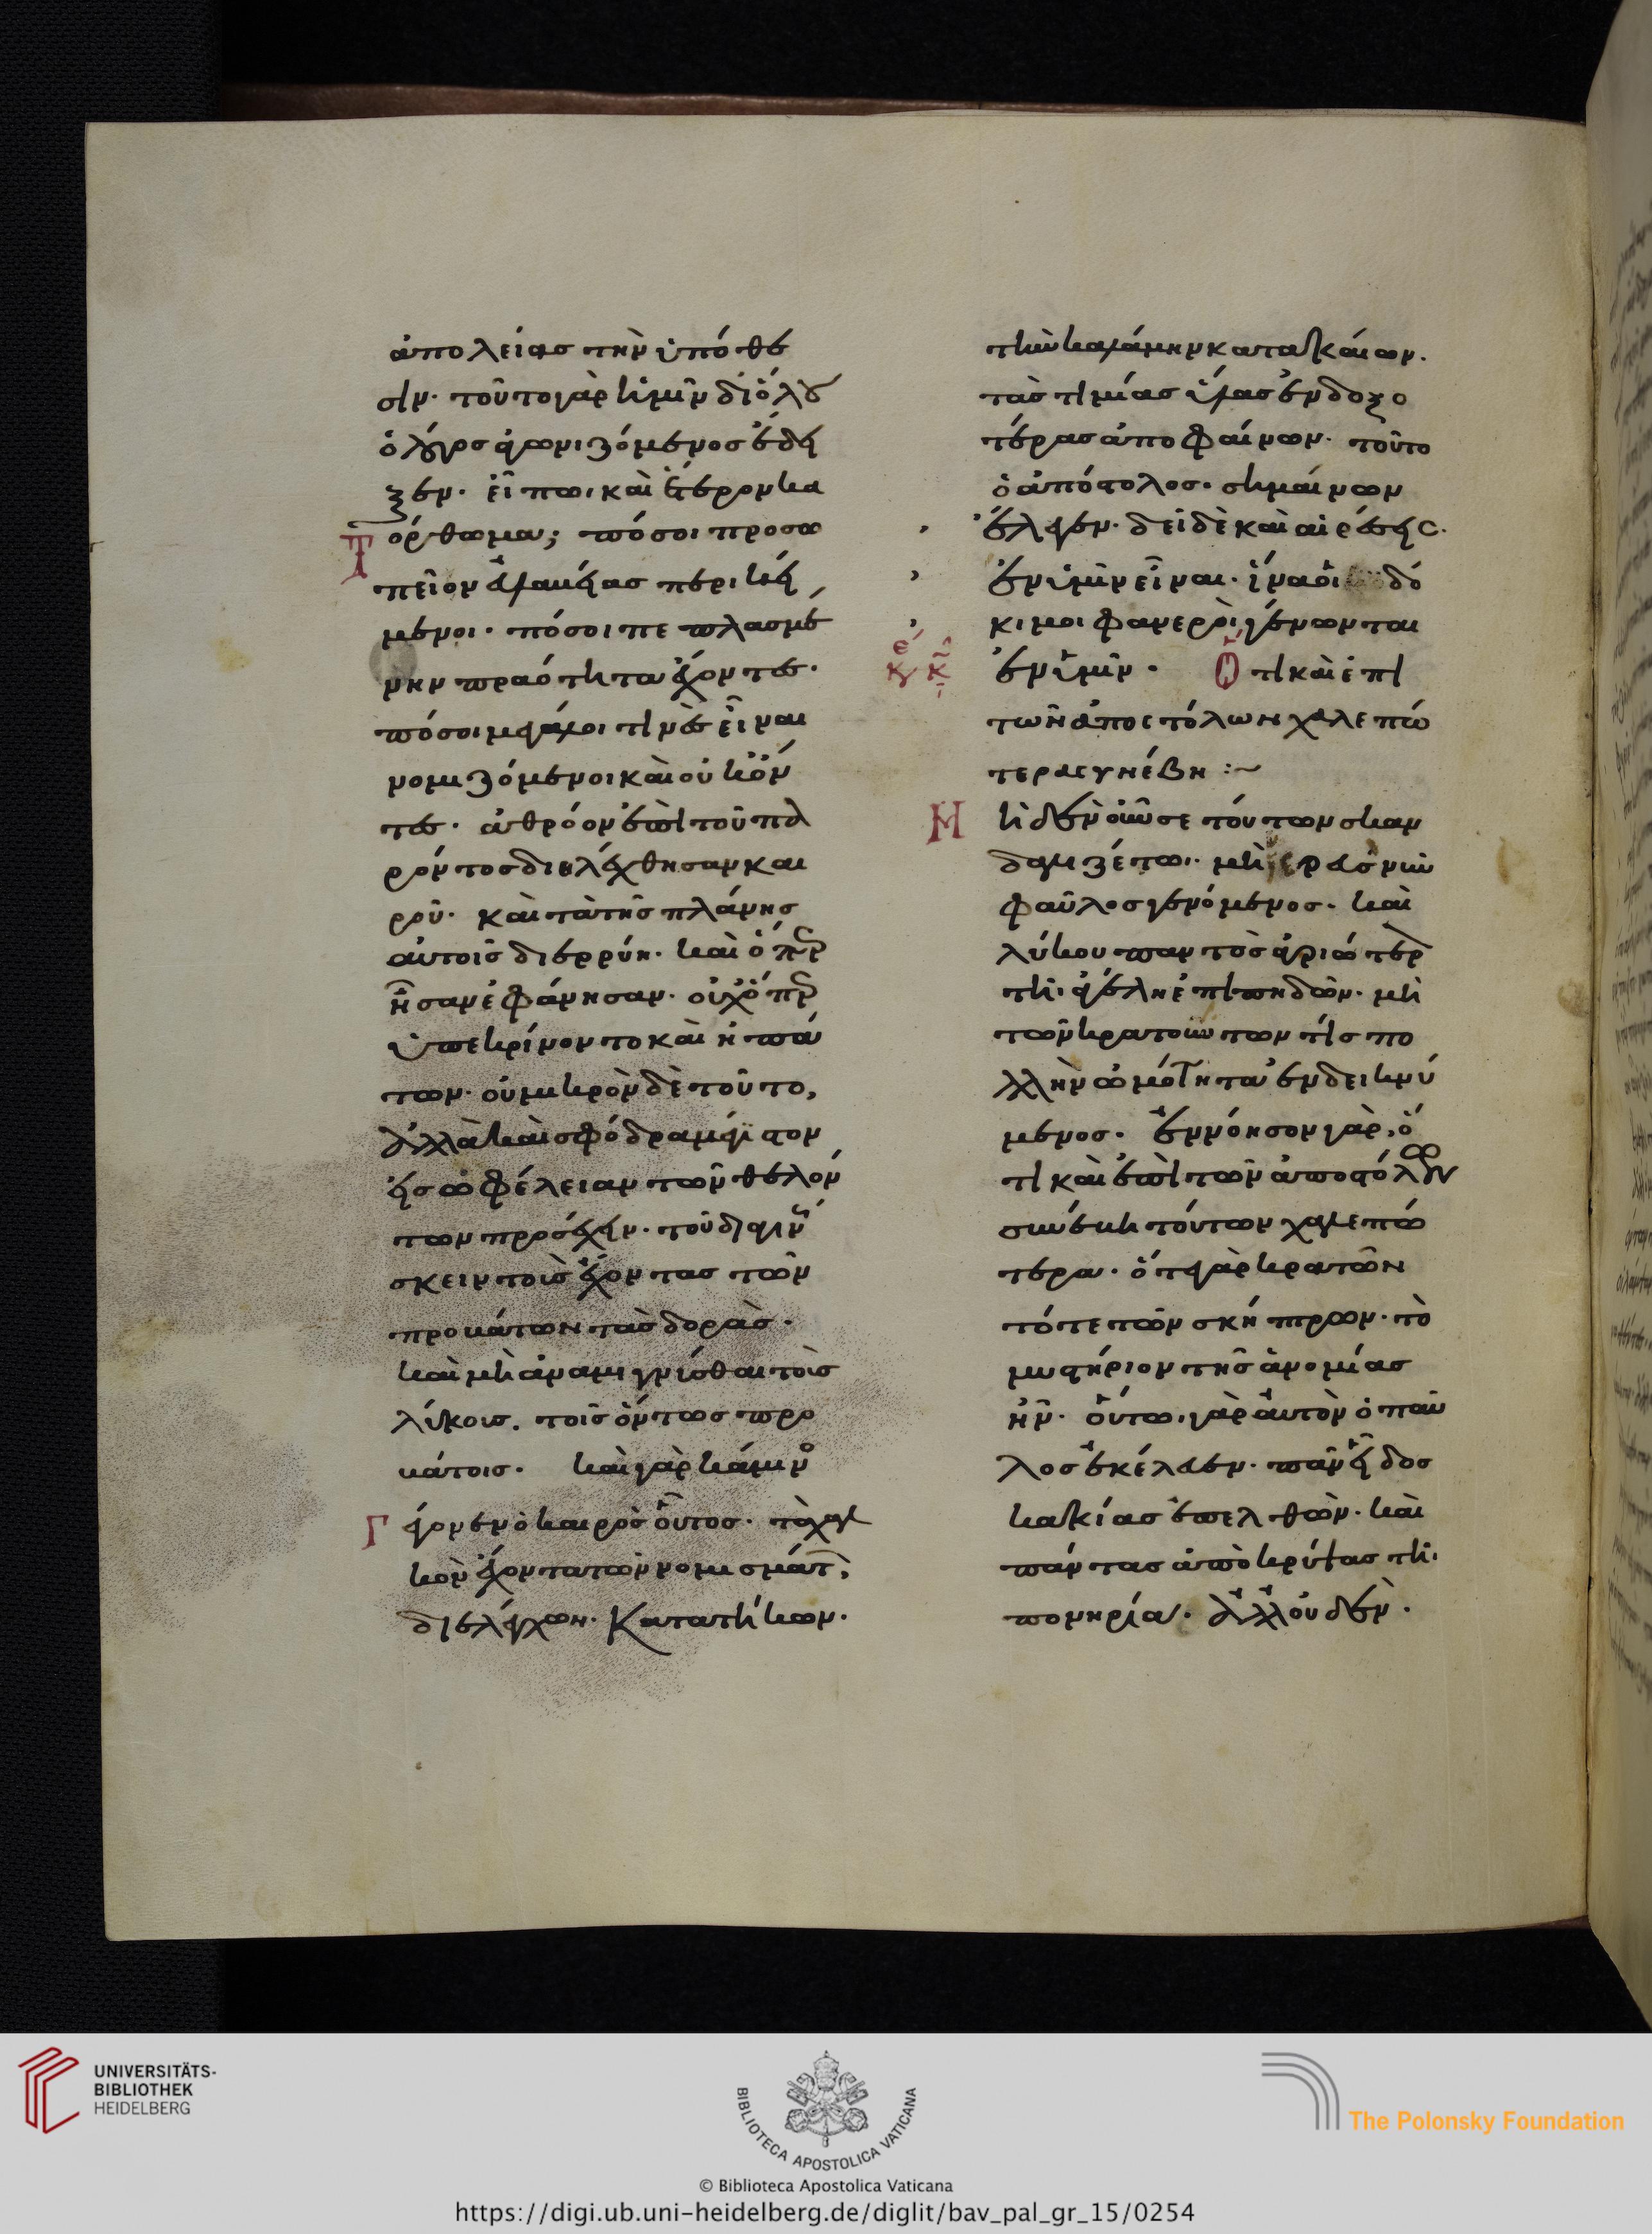 ἀπολείας τὴν ὑπόθε
σιν· τοῦτο γὰρ ἡμῖν δι' ὅλου
ὁ λόγος ἀγωνιζόμενος ἔδει
ξεν· εἴπω καὶ ἕτερον κα
τόρθωμα; πόσοι προσω
πεῖον ἐπιεικείας περικεί
μενοι· πόσοι πεπλασμέ
νην πραότητα ἔχοντες·
πόσοι μεγάλοι τινὲς εἶναι
νομιζόμενοι καὶ οὐκ ὄν
τες· ἀθρόον ἐπὶ τοῦ πα
ρόντος διηλέχθησαν και
ροῦ· καὶ τὰ τῆς πλάνης
αὐτοῖς διερρύη· καὶ ὅπερ
ἦσαν ἐφάνησαν· οὐχ ὅπερ
ὑπεκρίνοντο καὶ ἠπά
των· οὐ μικρὸν δὲ τοῦτο,
ἀλλὰ καὶ σφόδρα μέγιστον
εἰς ὠφέλειαν τῶν θελόν
των προσέχειν· τοῦ διαγινώ
σκειν τοὺς ἔχοντας τῶν
προβάτων τὰς δορὰς·
καὶ μὴ ἀναμιγνύσθαι τοὺς
λύκους. τοῖς ὄντως προ
βάτοις· καὶ γὰρ κάμινος
γέγονεν ὁ καιρὸς οὗτος· τὰ χαλ
κὸν ἔχοντα τῶν νομισμάτων,
διελέγχων· κατατήκων·
τὴν καλάμην κατακαίων.
τὰς τιμίας ὕλας ἐνδοξο
τέρας ἀποφαίνων· τοῦτο
ὁ ἀπόστολος· σημαίνων
ἔλεγεν· δεῖ δὲ καὶ αἱρέσεις·
ἐν ὑμῖν εἶναι· ἵνα οἱ δό
κιμοι φανεροὶ γένωνται
ἐν ὑμῖν· Ὅτι καὶ ἐπὶ
τῶν ἀποστόλων χαλεπώ
τερα συνέβη :~
Μηδὲν οὖν σε τούτων σκαν
δαλιζέτω· μὴ ἱερεὺς νῦν
φαῦλος γενόμενος· καὶ
λύκου παντὸς ἀγριώτερον
τῇ ἀγέλῃ ἐπιπηδῶν· μὴ
τῶν κρατούντων τίς πο
λλὴν ὠμότητα ἐνδεικνύ
μενος· ἐννόησον γὰρ, ὅ
τι καὶ ἐπὶ τῶν ἀποστόλων
συνέβη τούτων χαλεπώ
τερα· ὅτε γὰρ κρατῶν
τότε τῶν σκήπτρων· τὸ
μυστήριον τῆς ἀνομίας
ἦν· οὕτω γὰρ αὐτὸν ὁ παῦ
λος ἐκέλεσεν· πᾶν εἶδος
κακίας ἐπελθὼν· καὶ
πάντας ἀποκρύψας τῇ
πονηρίᾳ· ἀλλ' οὐδὲν·
UNIVERSITÄTS-
BIBLIOTHEK
HEIDELBERG
BIBLIOTECA APOSTOLICA VATICANA
The Polonsky Foundation
© Biblioteca Apostolica Vaticana
https://digi.ub.uni-heidelberg.de/diglit/bav_pal_gr_15/0254